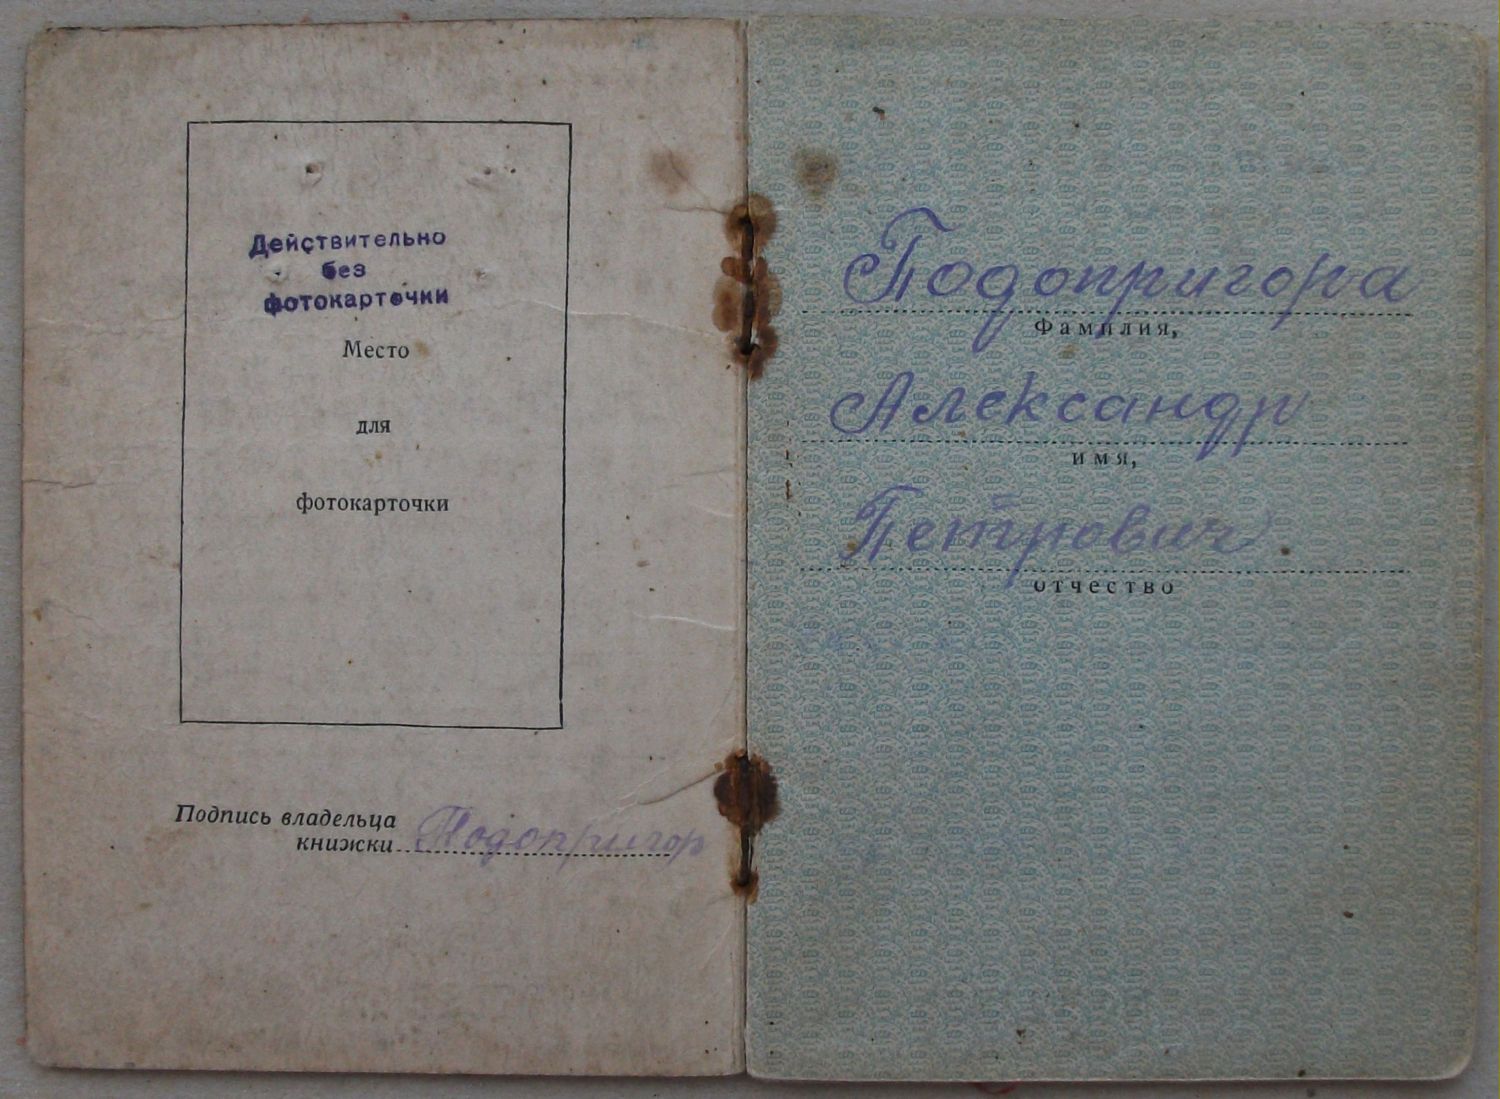 Действительно
без
фотокарточки
Место
для
фотокарточки
Подпись владельца
книжки Подопригор
Подопригора
Фамилия,
Александр
имя,
Петрович
отчество